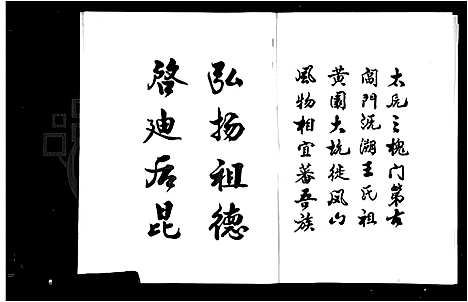 太原三槐门第古
門湖王氏祖
黄園大坑徙凤山
風物相宜蕃吾族
弘扬祖德
啓迪后昆